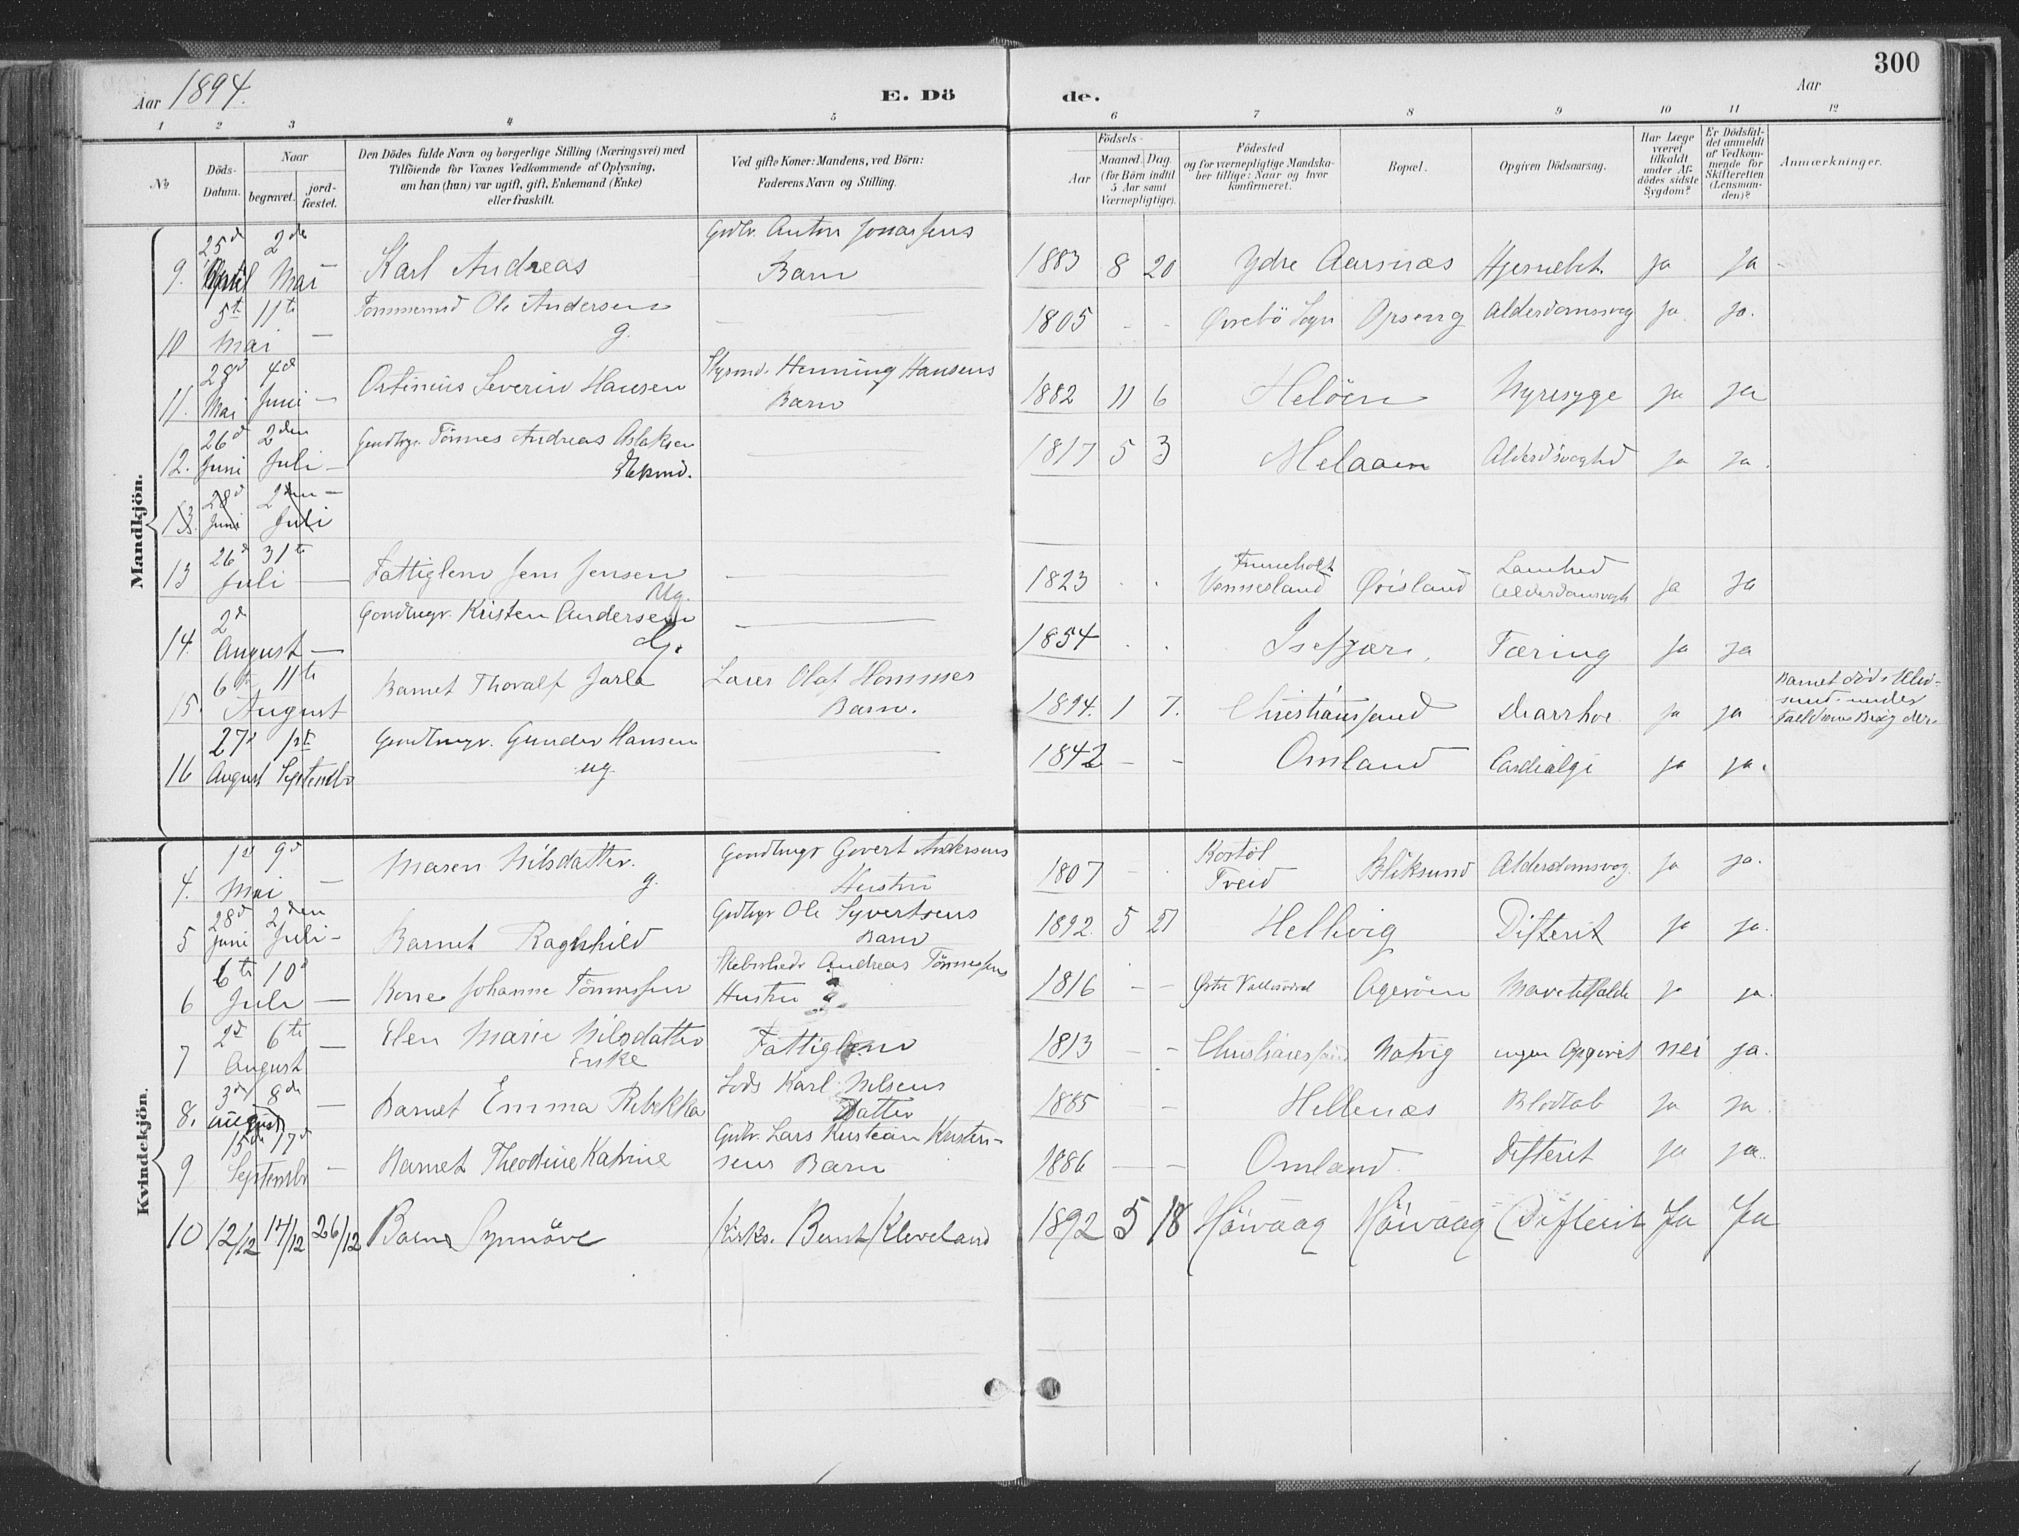 Aar 1894.
E. Dö de.
Aar
300
1 2 3 4 5 6 7 8 9 10 11 12
No
Döds-Datum.
Naar
begravet.
jord-fæstet.
Den Dödes fulde Navn og borgerlige Stilling (Næringsvei) med
Tilföiende for Voxnes Vedkommende af Oplysning,
om han (hun) var ugift, gift, Enkemand (Enke)
eller fraskilt.
Ved gifte Koner: Mandens, ved Börn:
Faderens Navn og Stilling.
Födsels-
Aar
Maaned. Dag.
(for Börn indtil
5 Aar samt
Værnepligtige).
Födested
og for værnepligtige Mandska-
ber tillige: Naar og hvor
konfirmeret.
Bopæl.
Opgiven Dödsaarsag.
Har Læge
været
tilkaldt
under Af-
dödes sidste
Sygdom?
Er Dödsfal-
det anmeldt
af Vedkom-
mende for
Skifteretten
(Lensman-
den)?
Anmærkninger.
Mandkjön.
9. 25de April 2den Mai Karl Andreas Gbdbr. Anton Jonassens Barn 1883 8 20 Ydre Aarsnæs Hjernebet. ja ja
10 5te Mai 11te — Tømmermd Ole Andersen g. — 1805 - - Øvrebö Sogn Opseng Alderdomsvag ja ja.
11. 28de Mai 4de Juni — Ostinius Severin Hansen Styrmd. Henning Hansens Barn 1882 11 6 Helöen Nyresyge ja ja
12. 26de Juni 2den Juli — Gaardbrgr. Tönnes Andreas Aslaksen Enkemd. — 1817 5 3 Melaaen Alderdsvaghed ja ja.
13. 28de Juni 2den Juli —
13 26de Juli 31te — Fattiglem Jens Jensen Ug. — 1823 . . Vennesland Örisland Lamhed Alderdomsvagh ja ja
14. 2de August — Gaardbrugr. Kristen Andersen G. — 1854 . . Isefjær Tæring ja ja
15. 6te 11te August Barnet Thoralf Jarle Lærer Olaf Hommes Barn. 1894. 1 7. Christianssand Diarrhoe ja ja Barnet döde
16 27de August 1ste Septembr Gaardbrugr. Gunder Hansen ug. — 1842 — — Omland Cardialgi ja ja.
Kvindekjön.
4. 1ste Mai 9de — Maren Nilsdatter. g. Gaardbrugr Govert Andersens Hustru 1807 - . Kostöl Treid Bliksund Alderdomsvag. ja ja.
5 28de Juni 2den Juli — Barnet Ragnhild Gbdbgr Ole Syvertsens Barn 1892. 5 21 Hellvig Difterit ja ja.
6 6te Juli 10de — Johanne Tönnessen Skibsreder Andreas Tönnessens Hustru 1816 — — Østre Vallesværd Agerøen Mavetilfælde ja ja.
7 2de August 6te — Elen Marie Nilsdatter Enke Fattiglem 1813 — - Christianssand Natvig ingen Opgivet nei ja.
8. 3die August 8de — Barnet Emma Rebekka Lods Karl Nilsens Datter 1885 — Hellenæs Blodtab ja ja
9 15de Septembr 17de — Barnet Theodine Katrine Gbdbr. Lars Kristian Kristen-
sens Barn 1886 — — Omland Difterit ja ja.
10 12/12 17/12 26/12 Barn Synnöve Kirks. Bernt Kleveland 1892 5 18 Höivaag Höivaag Difterit Ja Ja